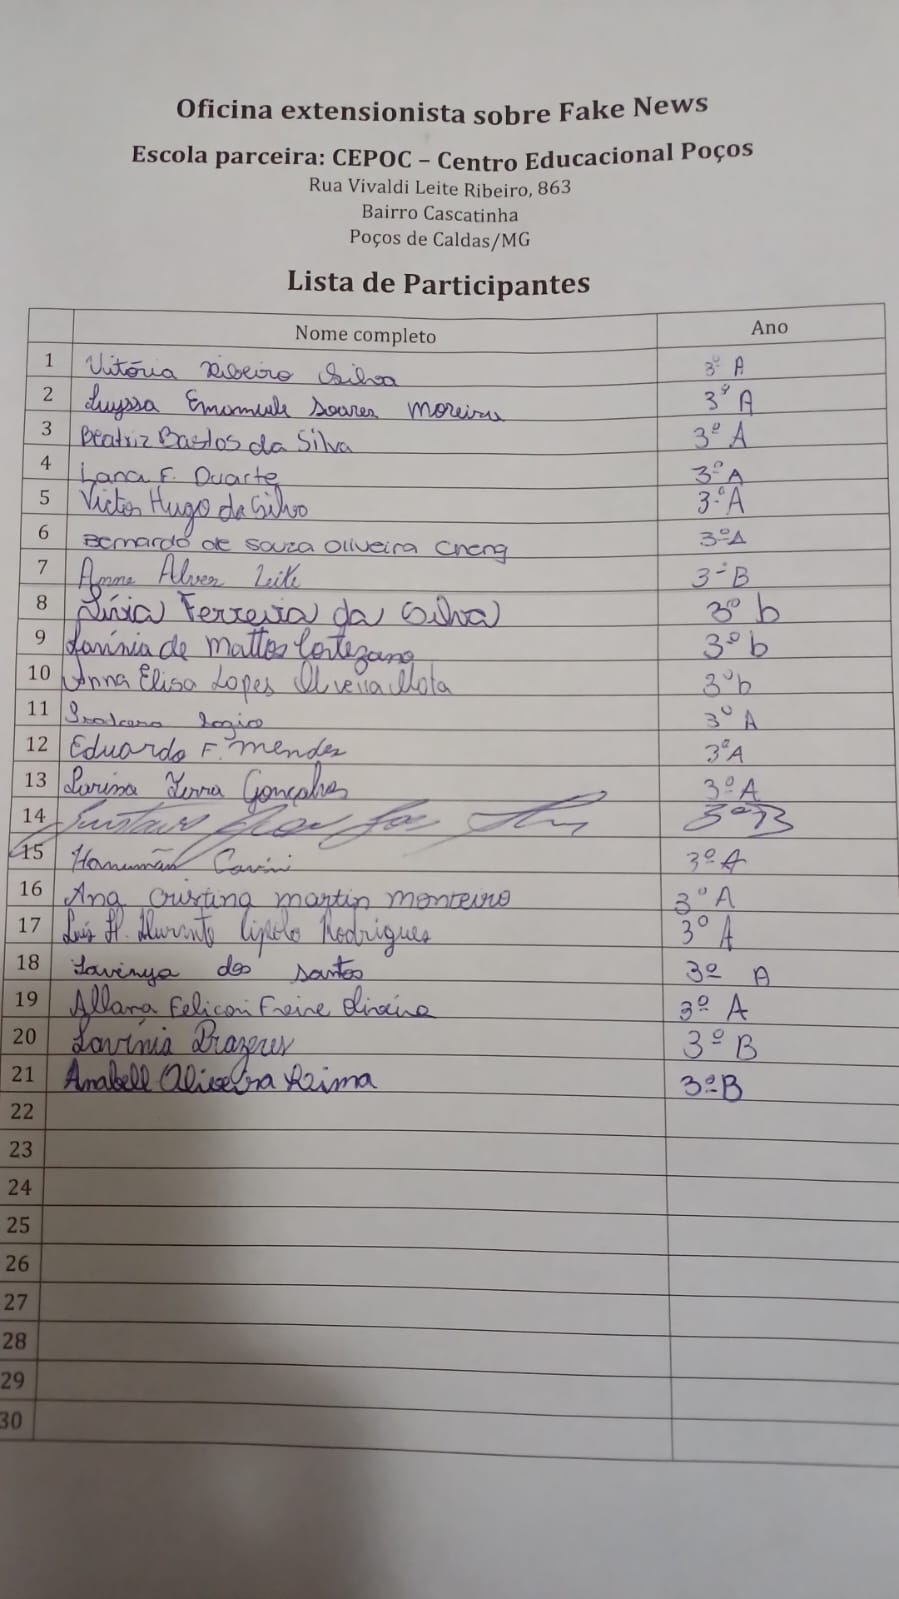 Oficina extensionista sobre Fake News
Escola parceira: CEPOC – Centro Educacional Poços
Rua Vivaldi Leite Ribeiro, 863
Bairro Cascatinha
Poços de Caldas/MG
Lista de Participantes
Nome completo Ano
1 Vitória Ribeiro Silva 3º A
2 Emanuele Soares Moreira 3º A
3 Beatriz Bastos da Silva 3º A
4 Lara F. Duarte 3º A
5 Victor Hugo da Silva 3º A
6 Bernardo de Souza Oliveira Cheng 3º A
7 Alves Leite 3º B
8 Lívia Ferreira da Silva 3º b
9 Lavínia de Mattos Cortezano 3º b
10 Anna Elisa Lopes Oliveira Mota 3º b
11 3º A
12 Eduardo F. Mendes 3º A
13 Larissa Terra Gonçalves 3º A
14 Gustavo 3º B
15 3º A
16 Ana Cristina martin monteiro 3º A
17 Luis H. Rodrigues 3º A
18 Lavinya dos santos 3º A
19 Allana Freire 3º A
20 Lavínia Prazeres 3º B
21 Anabell Oliveira 3º B
22
23
24
25
26
27
28
29
30